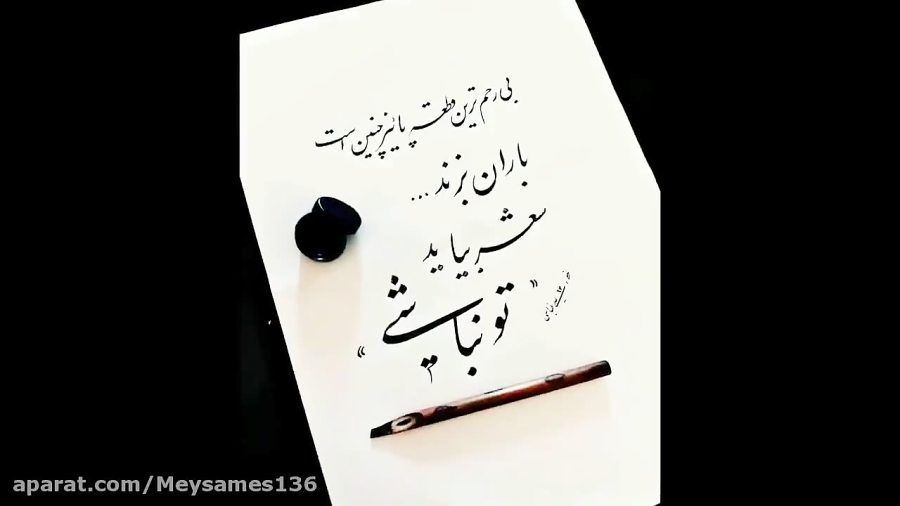 بی رحم ترین قطعه پاییز چنین است
باران بزند ...
شعر بیاید
« تو نباشی »
aparat.com/Meysames136